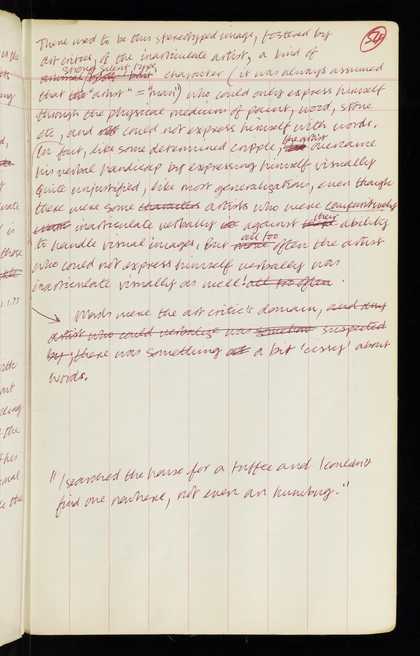 54
There used to be this stereotyped image, fostered by
art critics, of the inarticulate artist, a kind of
strong silent type
character (it was always assumed
that the "artist" = "man") who could only express himself
through the physical medium of paint, wood, stone
etc, and could not express himself with words.
In fact, like some determined cripple, the artist overcame
his verbal handicap by expressing himself visually
Quite unjustified, like most generalizations, even though
there were some characters artists who were comparatively
inarticulate verbally as against their ability
to handle visual images. But all too often the artist
who could not express himself verbally was
inarticulate visually as well all too often.
Words were the art critic's domain, and any
artist who could verbalize was somehow suspected
by there was something a bit 'cissy' about
words.
"I searched the house for a truffle and I couldn't
find one nowhere, not even an humbug."